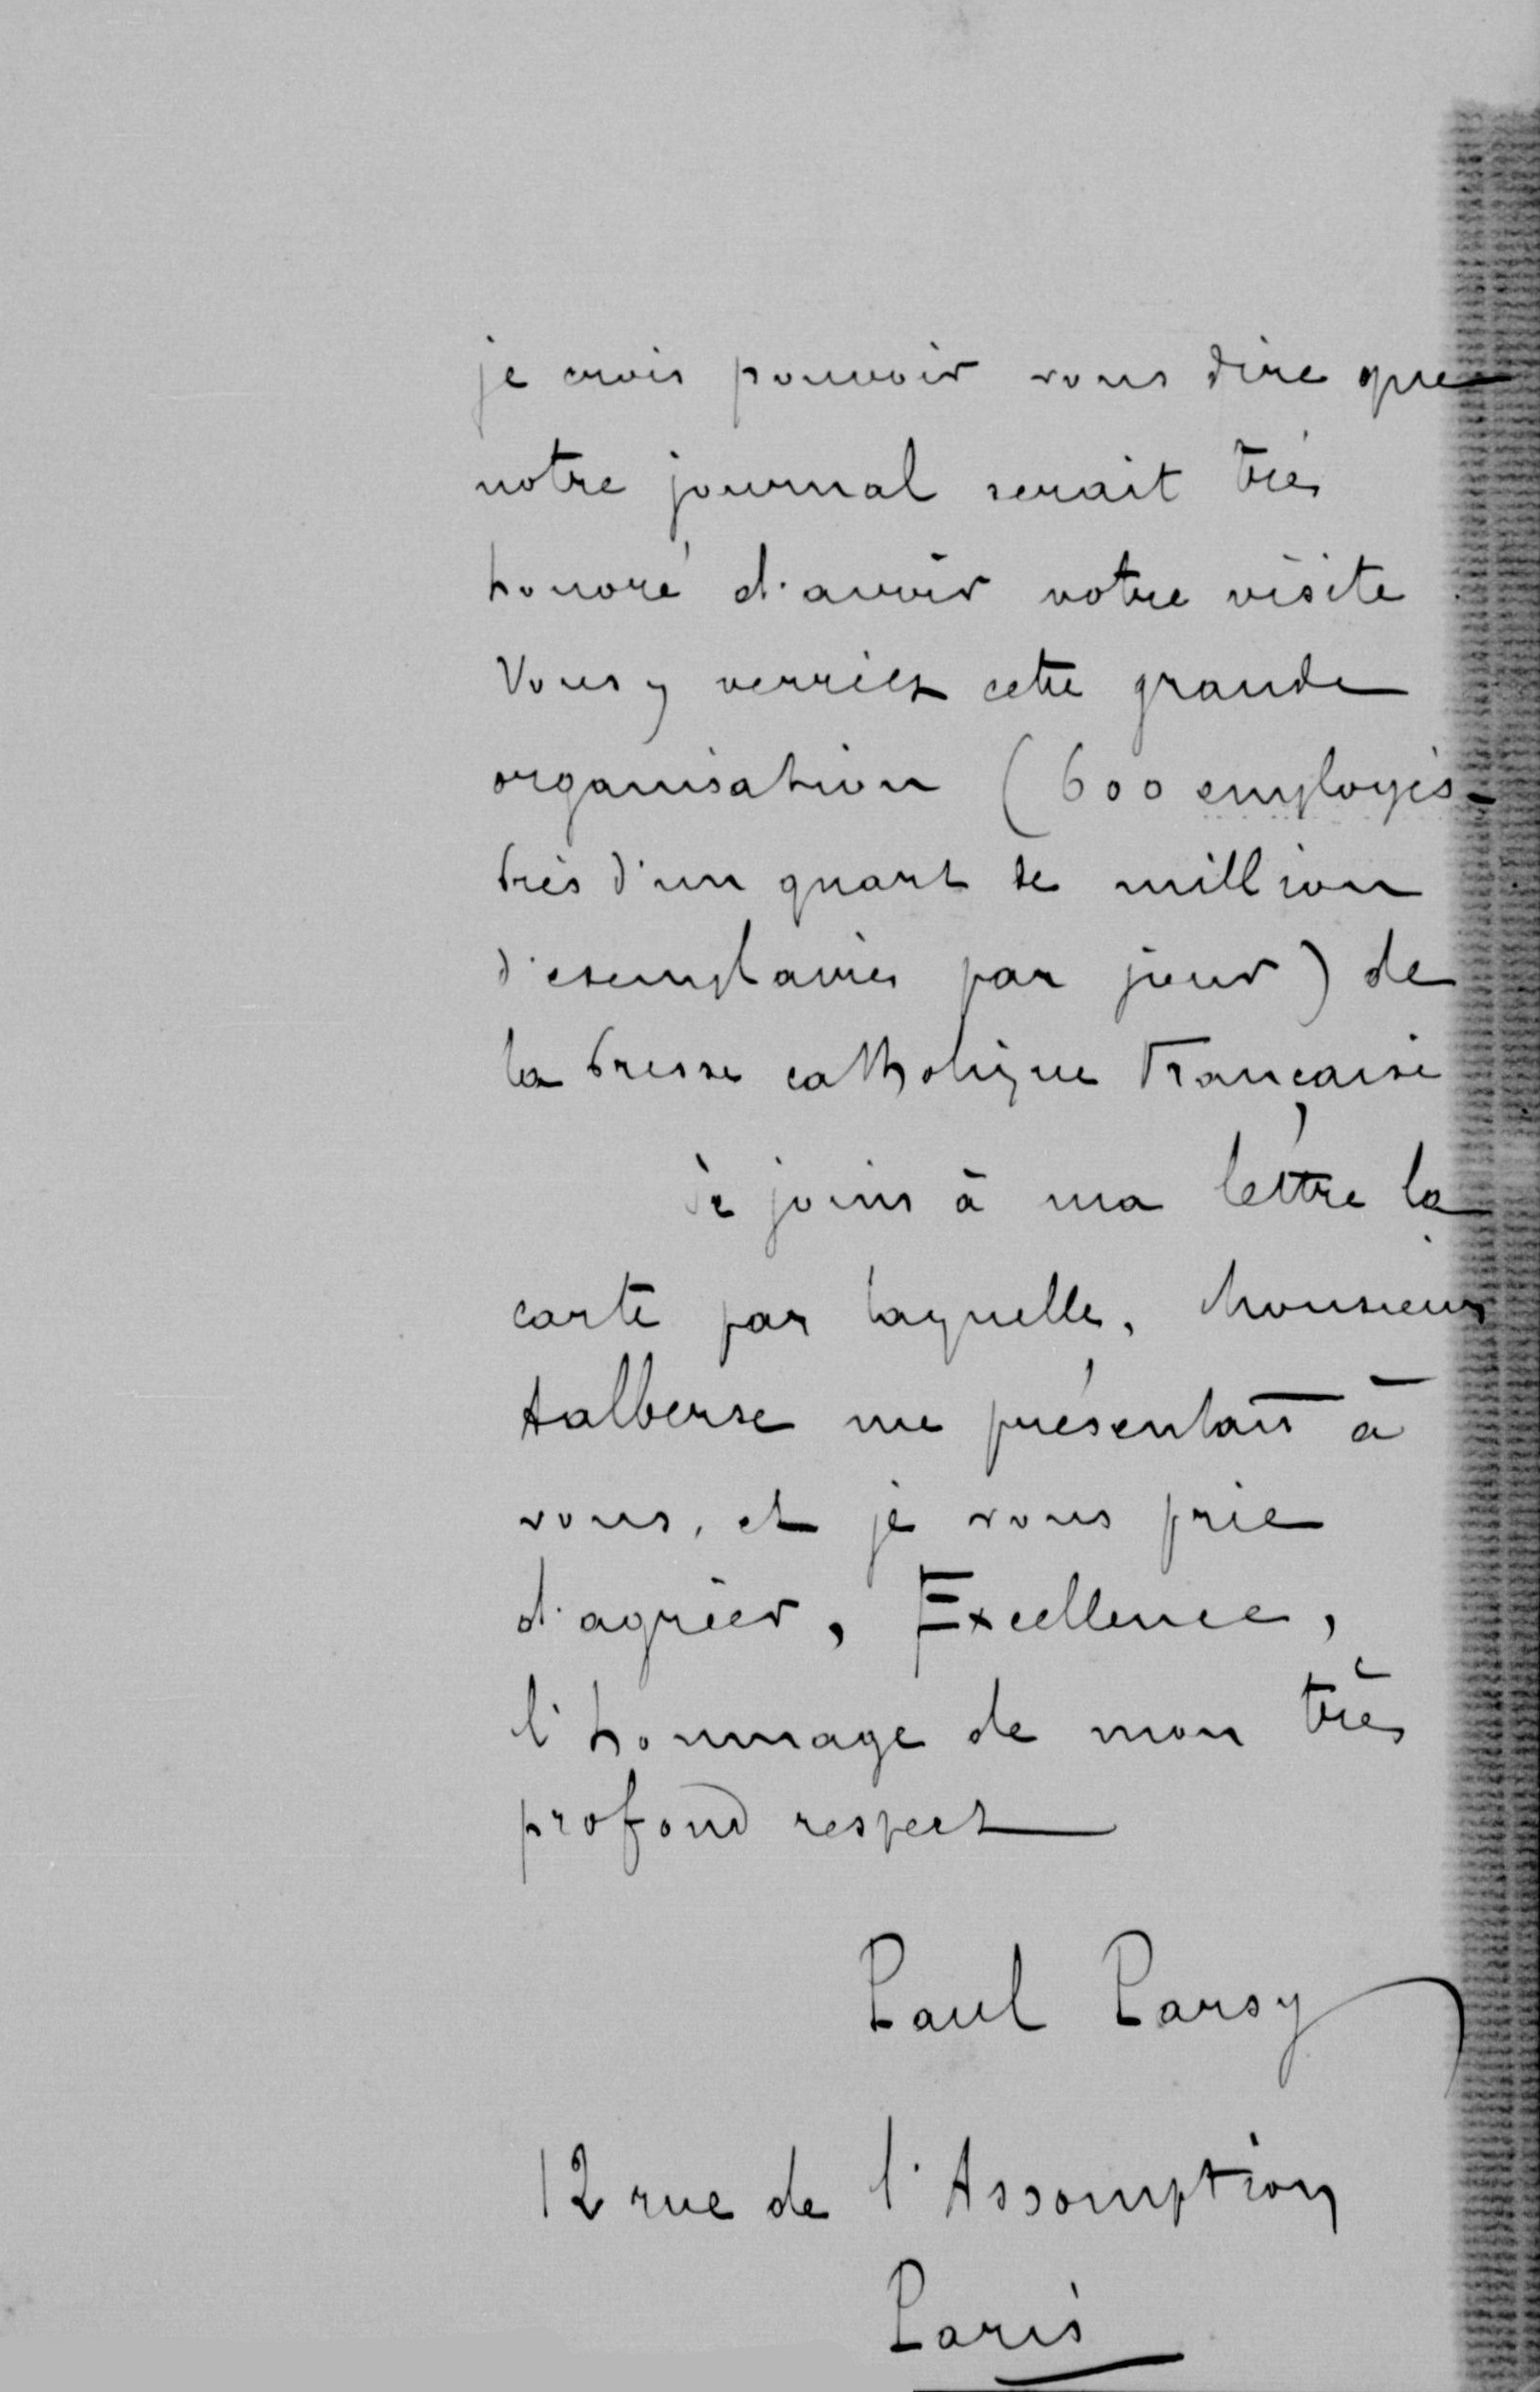 je crois pouvoir vous dire que
notre journal serait très
honoré d'avoir votre visite
Vous y verriez cette grande
organisation (600 employés -
près d'un quart de million
d'exemplaires par jour) de
la Presse catholique Française
Je joins à ma lettre la
carte par laquelle, Monsieur
Aalberse me présentait à
vous, et je vous prie
d'agréer, Excellence,
l'hommage de mon très
profond respect
Paul Parsy
12 rue de l'Assomption
Paris